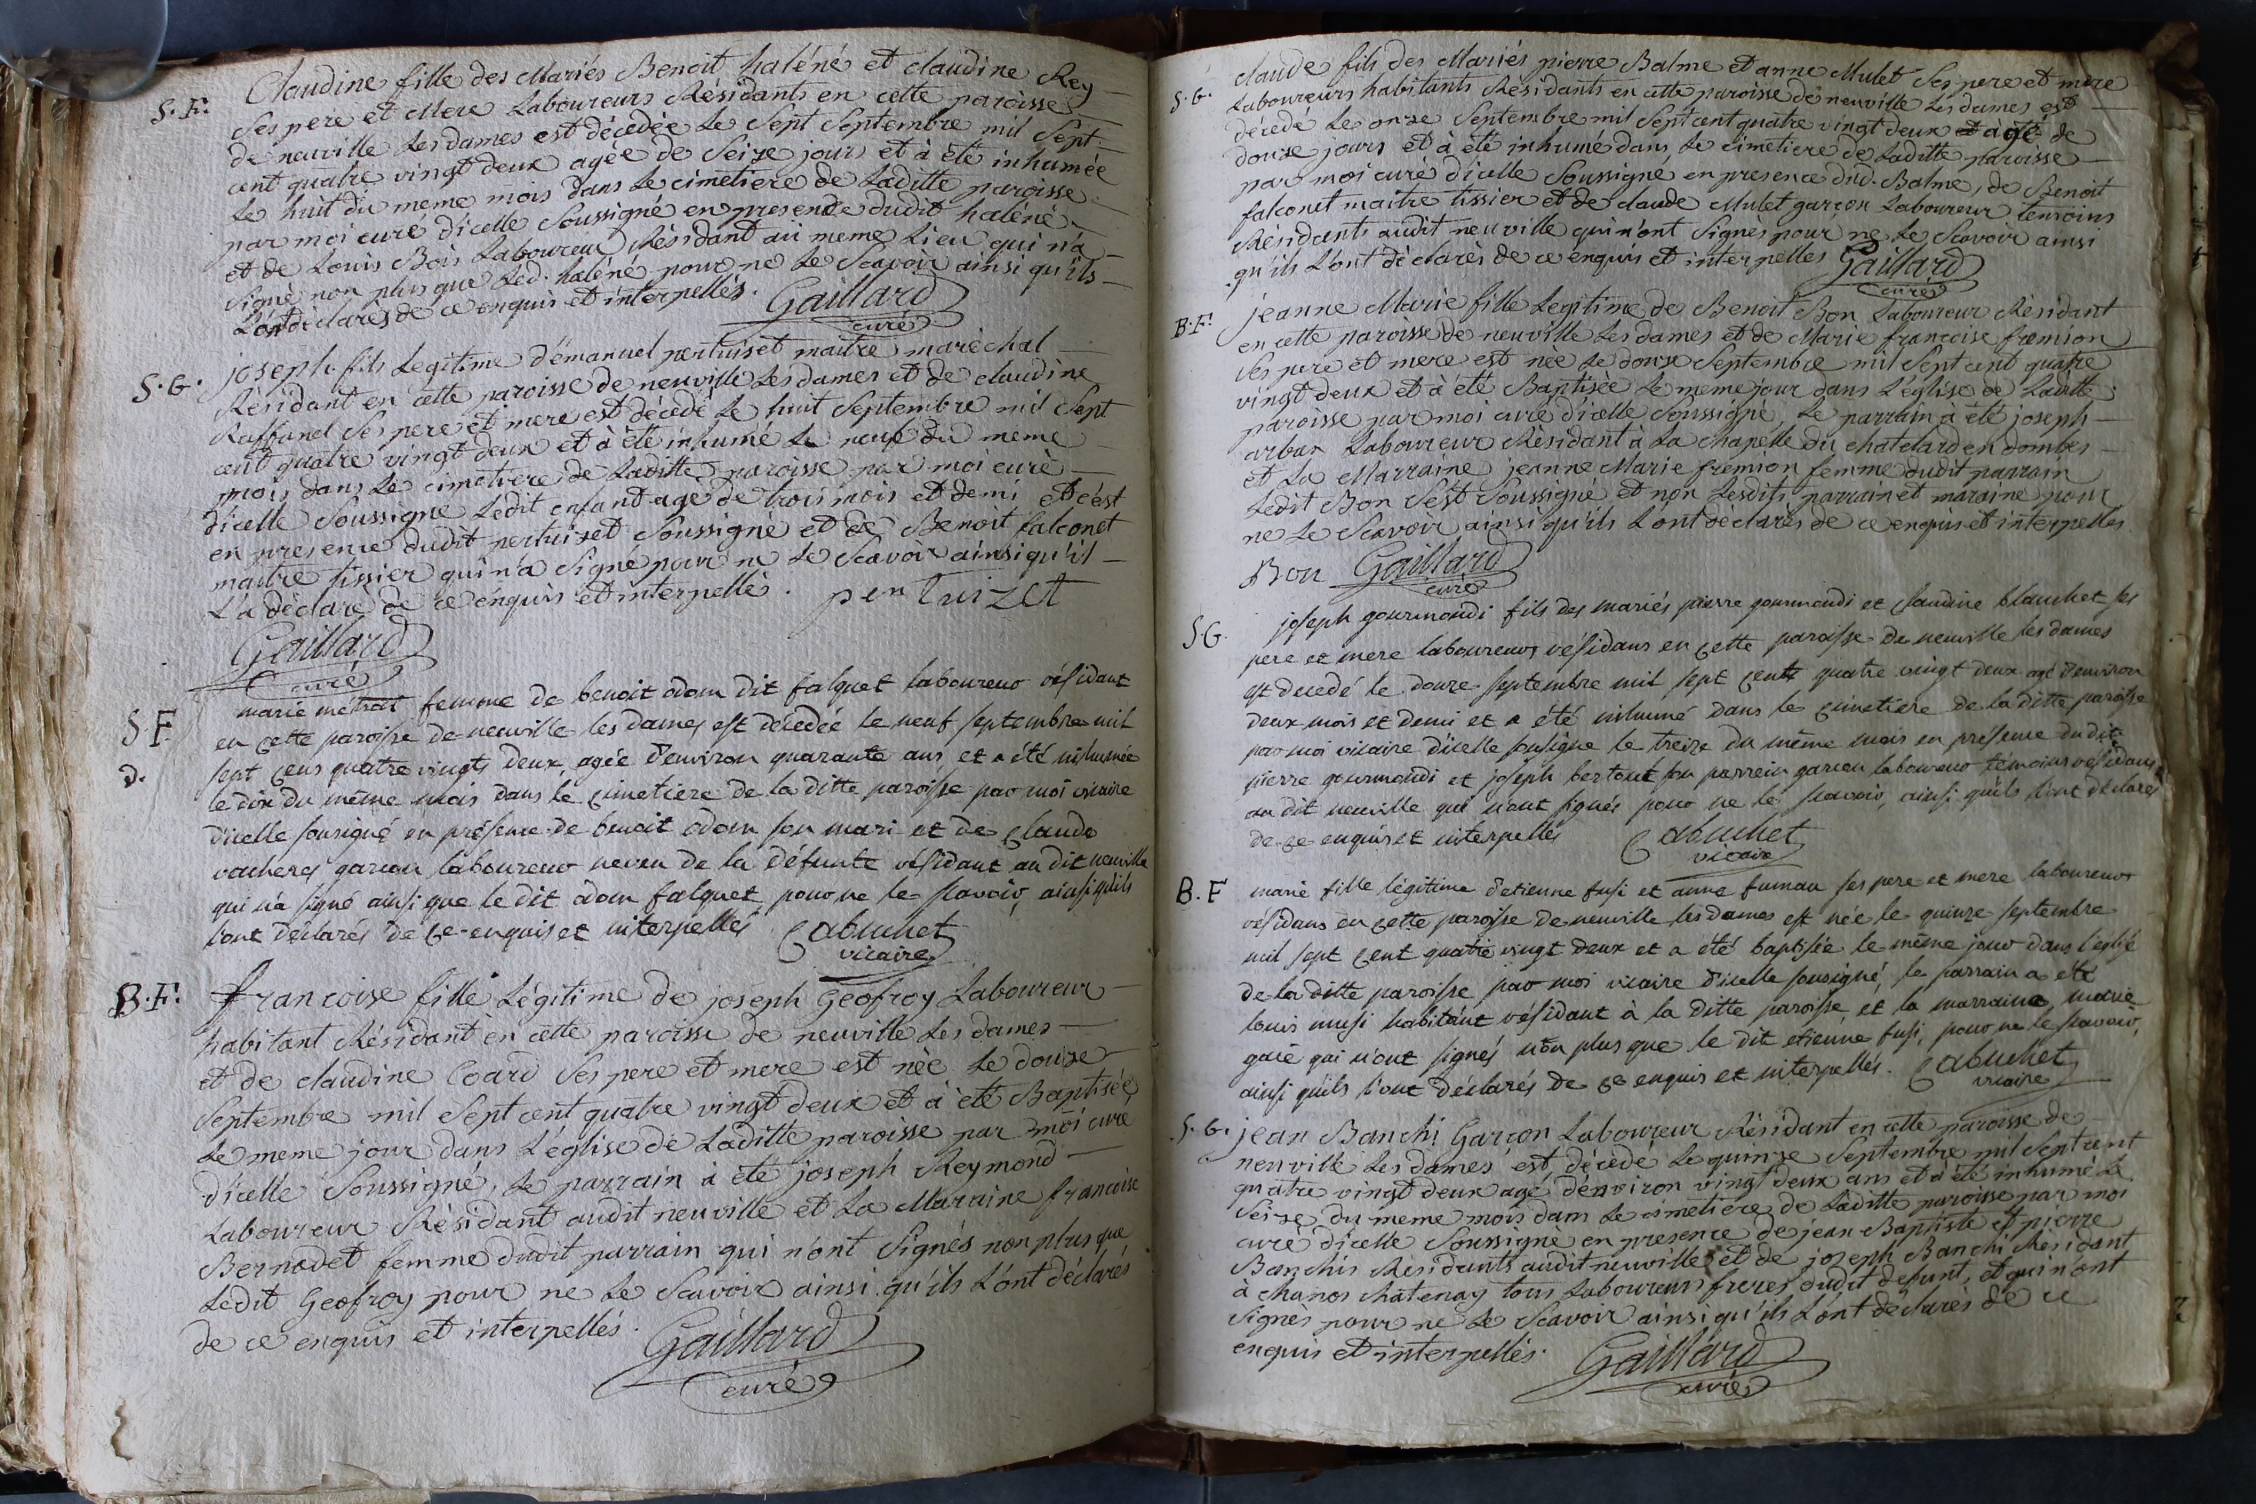 S. F. Claudine fille des Mariés Benoit haléné et claudine Rey
Ses pere et Mere Laboureurs Résidants en cette paroisse
de neuville Les dames est décédée Le Sept Septembre mil Sept
cent quatre vingt deux agée de Seize jours et à été inhumée
Le huit du meme mois dans Le cimetiere de Laditte paroisse
par moi curé dicelle Soussigné en presence dudit haléné
et de Louis Bois Laboureur Résidant au meme Lieu qui n'a
Signé non plus que Led. haléné pour ne Le Scavoir ainsi qu'ils
L'ont déclarés de ce enquis et interpellés. Gaillard
curé
S. G. joseph fils Legitime d'émanuel pertuiset maitre maréchal
Résidant en cette paroisse de neuville Les dames et de claudine
Raffanel Ses pere et mere est décédé Le huit Septembre mil Sept
cent quatre vingt deux et à été inhumé Le neuf du meme
mois dans Le cimetiere de Laditte paroisse par moi curé
dicelle Soussigné Ledit enfant agé de trois mois et demi et c'est
en presence dudit pertuiset Soussigné et de Benoit falconet
maitre tissier qui n'a Signé pour ne Le Scavoir ainsi qu'il
L'a déclaré de ce enquis et interpellé. pertuizet
Gaillard
curé
S. F. marie métrat femme de benoit adam dit falquet laboureur résidant
en cette paroisse de neuville les dames est décedée le neuf septembre mil
D. sept cens quatre vingts deux agée d'environ quarante ans et a été inhumée
le dix du même mois dans le cimetiere de la ditte paroisse par moi vicaire
d'icelle sousigné en présence de benoit adam son mari et de claude
vacheres garcon laboureur neveu de la défunte résidant au dit neuville
qui n'a signé ainsi que le dit adam falquet pour ne le scavoir, ainsi qu'ils
l'ont déclarés de ce enquis et interpellés Cabuchet
vicaire
B. F. francoise fille Légitime de joseph Geofroy Laboureur
habitant Résidant en cette paroisse de neuville Les dames
et de claudine Coard Ses pere et mere est née Le douze
Septembre mil Sept cent quatre vingt deux et à été Baptisée
Le meme jour dans L'église de Laditte paroisse par moi curé
dicelle Soussigné, Le parrain à été joseph Reymond
Laboureur Résidant audit neuville et La Maraine francoise
Bernadet femme dudit parrain qui n'ont Signés non plus que
Ledit Geofroy pour ne Le Scavoir ainsi qu'ils L'ont déclarés
de ce enquis et interpellés. Gaillard
curé
S. G. claude fils des Mariés pierre Balme et anne Mulet Ses pere et mere
Laboureurs habitants Résidants en cette paroisse de neuville Les dames est
décédé Le onze Septembre mil Sept cent quatre vingt deux et agé de
douze jours et à été inhumé dans Le cimetiere de Laditte paroisse
par moi curé dicelle Soussigné en presence dud. Balme, de Benoit
falconet maitre tissier et de claude Mulet garcon Laboureur temoins
Résidants audit neuville qui n'ont Signés pour ne Le Scavoir ainsi
qu'ils L'ont déclarés de ce enquis et interpellés Gaillard
curé
B. F. jeanne Marie fille Legitime de Benoit Bon Laboureur Résidant
en cette paroisse de neuville Les dames et de Marie francoise fremion
Ses pere et mere est née Le douze Septembre mil Sept cent quatre
vingt deux et à été Baptisée Le meme jour dans L'église de Laditte
paroisse par moi curé dicelle Soussigné, Le parrain a été joseph
arban Laboureur Résidant à La chapelle du chatelard en dombes
et La Marraine jeanne Marie fremion femme dudit parrain
Ledit Bon S'est Soussigné et non Lesdits parrain et maraine pour
ne Le Scavoir ainsi qu'ils L'ont déclarés de ce enquis et interpellés
Bon Gaillard
curé
S. G. joseph gourmandi fils des mariés pierre gourmandi et claudine blanchet ses
pere et mere laboureurs résidans en cette paroisse de neuville les dames
est decedé le douze septembre mil sept cent quatre vingt deux agé d'environ
deux mois et demi et a été inhumé dans le cimetiere de la ditte paroisse
par moi vicaire d'icelle sousigné le treize du même mois en présence du dit
pierre gourmandi et joseph bertout son parrein garcon laboureur témoins résidans
au dit neuville qui n'ont signés pour ne le scavoir, ainsi qu'ils l'ont déclarés
de ce enquis et interpellés Cabuchet
vicaire
B. F. marie fille légitime d'etienne fusi et anne fumau ses pere et mere laboureurs
résidans en cette paroisse de neuville les dames est née le quinze septembre
mil sept cent quatre vingt deux et a été baptisée le même jour dans l'églisé
de la ditte paroisse par moi vicaire d'icelle sousigné, le parrain a été
louis habitant résidant à la ditte paroisse et la marraine marie
qui n'ont signés non plus que le dit etienne fusi, pour ne le scavoir,
ainsi qu'ils l'ont déclarés de ce enquis et interpellés. Cabuchet
vicaire
S. G. jean Banchi Garcon Laboureur Résidant en cette paroisse de
neuville Les dames est décédé Le quinze Septembre mil Sept cent
quatre vingt deux agé d'environ vingt deux ans et à été inhumé Le
Seize du meme mois dans Le cimetiere de Laditte paroisse par moi
curé dicelle Soussigné en presence de jean Baptiste et pierre
Banchis Résidants audit neuville et de joseph Banchi Résidant
à chanos chatenay tous Laboureurs freres dudit défunt, et qui n'ont
Signés pour ne Le Scavoir ainsi qu'ils L'ont déclarés de ce
enquis et interpellés. Gaillard
curé